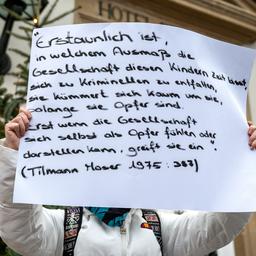 HOTEL
"Erstaunlich ist,
in welchem Ausmaß die
Gesellschaft diesen Kindern Zeit lässt,
sich zu Kriminellen zu entfalten,
sie kümmert sich kaum um sie,
solange sie Opfer sind.
Erst wenn die Gesellschaft
sich selbst als Opfer fühlen oder
darstellen kann, greift sie ein".
(Tilmann Moser 1975: 387)